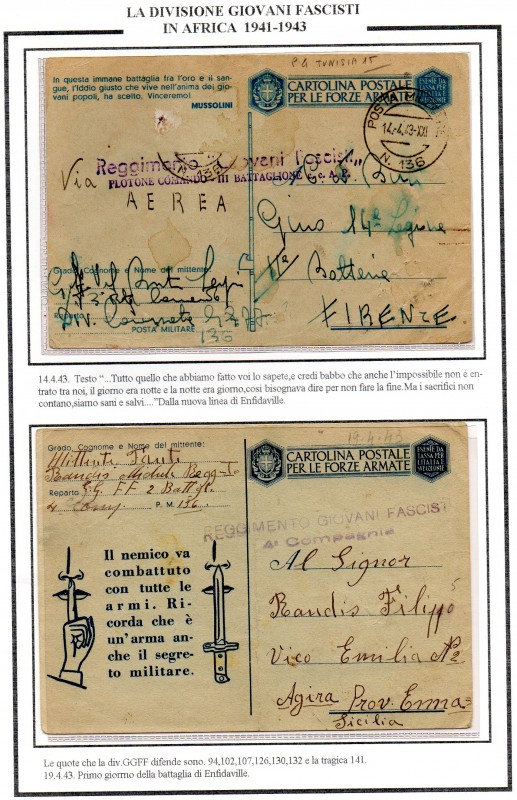 LA DIVISIONE GIOVANI FASCISTI
IN AFRICA 1941-1943
P.G TUNISIA 15
In questa immane battaglia fra l'oro e il san-
gue, l'Iddio giusto che vive nell'anima dei gio-
vani popoli, ha scelto. Vinceremo!
MUSSOLINI
CARTOLINA POSTALE
PER LE FORZE ARMATE
ESENTE DA
TASSA PER
L'ITALIA E
SVE COLONIE
POSTA MI
14.-4.43-XXI
N. 136
Reggimento "Giovani Fascisti"
PLOTONE COMANDO III BATTAGLIONE
Via
AEREA
Gino 14ª Legione
Batteria
FIRENZE
Grado Cognome e Nome del mittente:
Reparto
136
POSTA MILITARE
14.4.43. Testo "...Tutto quello che abbiamo fatto voi lo sapete,e credi babbo che anche l'impossibile non è en-
trato tra noi, il giorno era notte e la notte era giorno,così bisognava dire per non fare la fine.Ma i sacrifici non
contano,siamo sani e salvi...."Dalla nuova linea di Enfidaville.
19-4-43
Grado, Cognome e Nome del mittente:
Mittente Fante
Randis Michele Regg-to
Reparto G.G FF 2 Battgl.
4 Comp P. M. 136.
CARTOLINA POSTALE
PER LE FORZE ARMATE
ESENTE DA
TASSA PER
L'ITALIA E
SVE COLONIE
REGGIMENTO GIOVANI FASCISTI
4ª Compagnia
Il nemico va
combattuto
con tutte le
armi. Ri-
corda che è
un'arma an-
che il segre-
to militare.
Al Signor
Randis Filippo
Vico Emilia Nº2
Agira Prov. Enna
Sicilia
Le quote che la div.GGFF difende sono. 94,102,107,126,130,132 e la tragica 141.
19.4.43. Primo giormo della battaglia di Enfidaville.